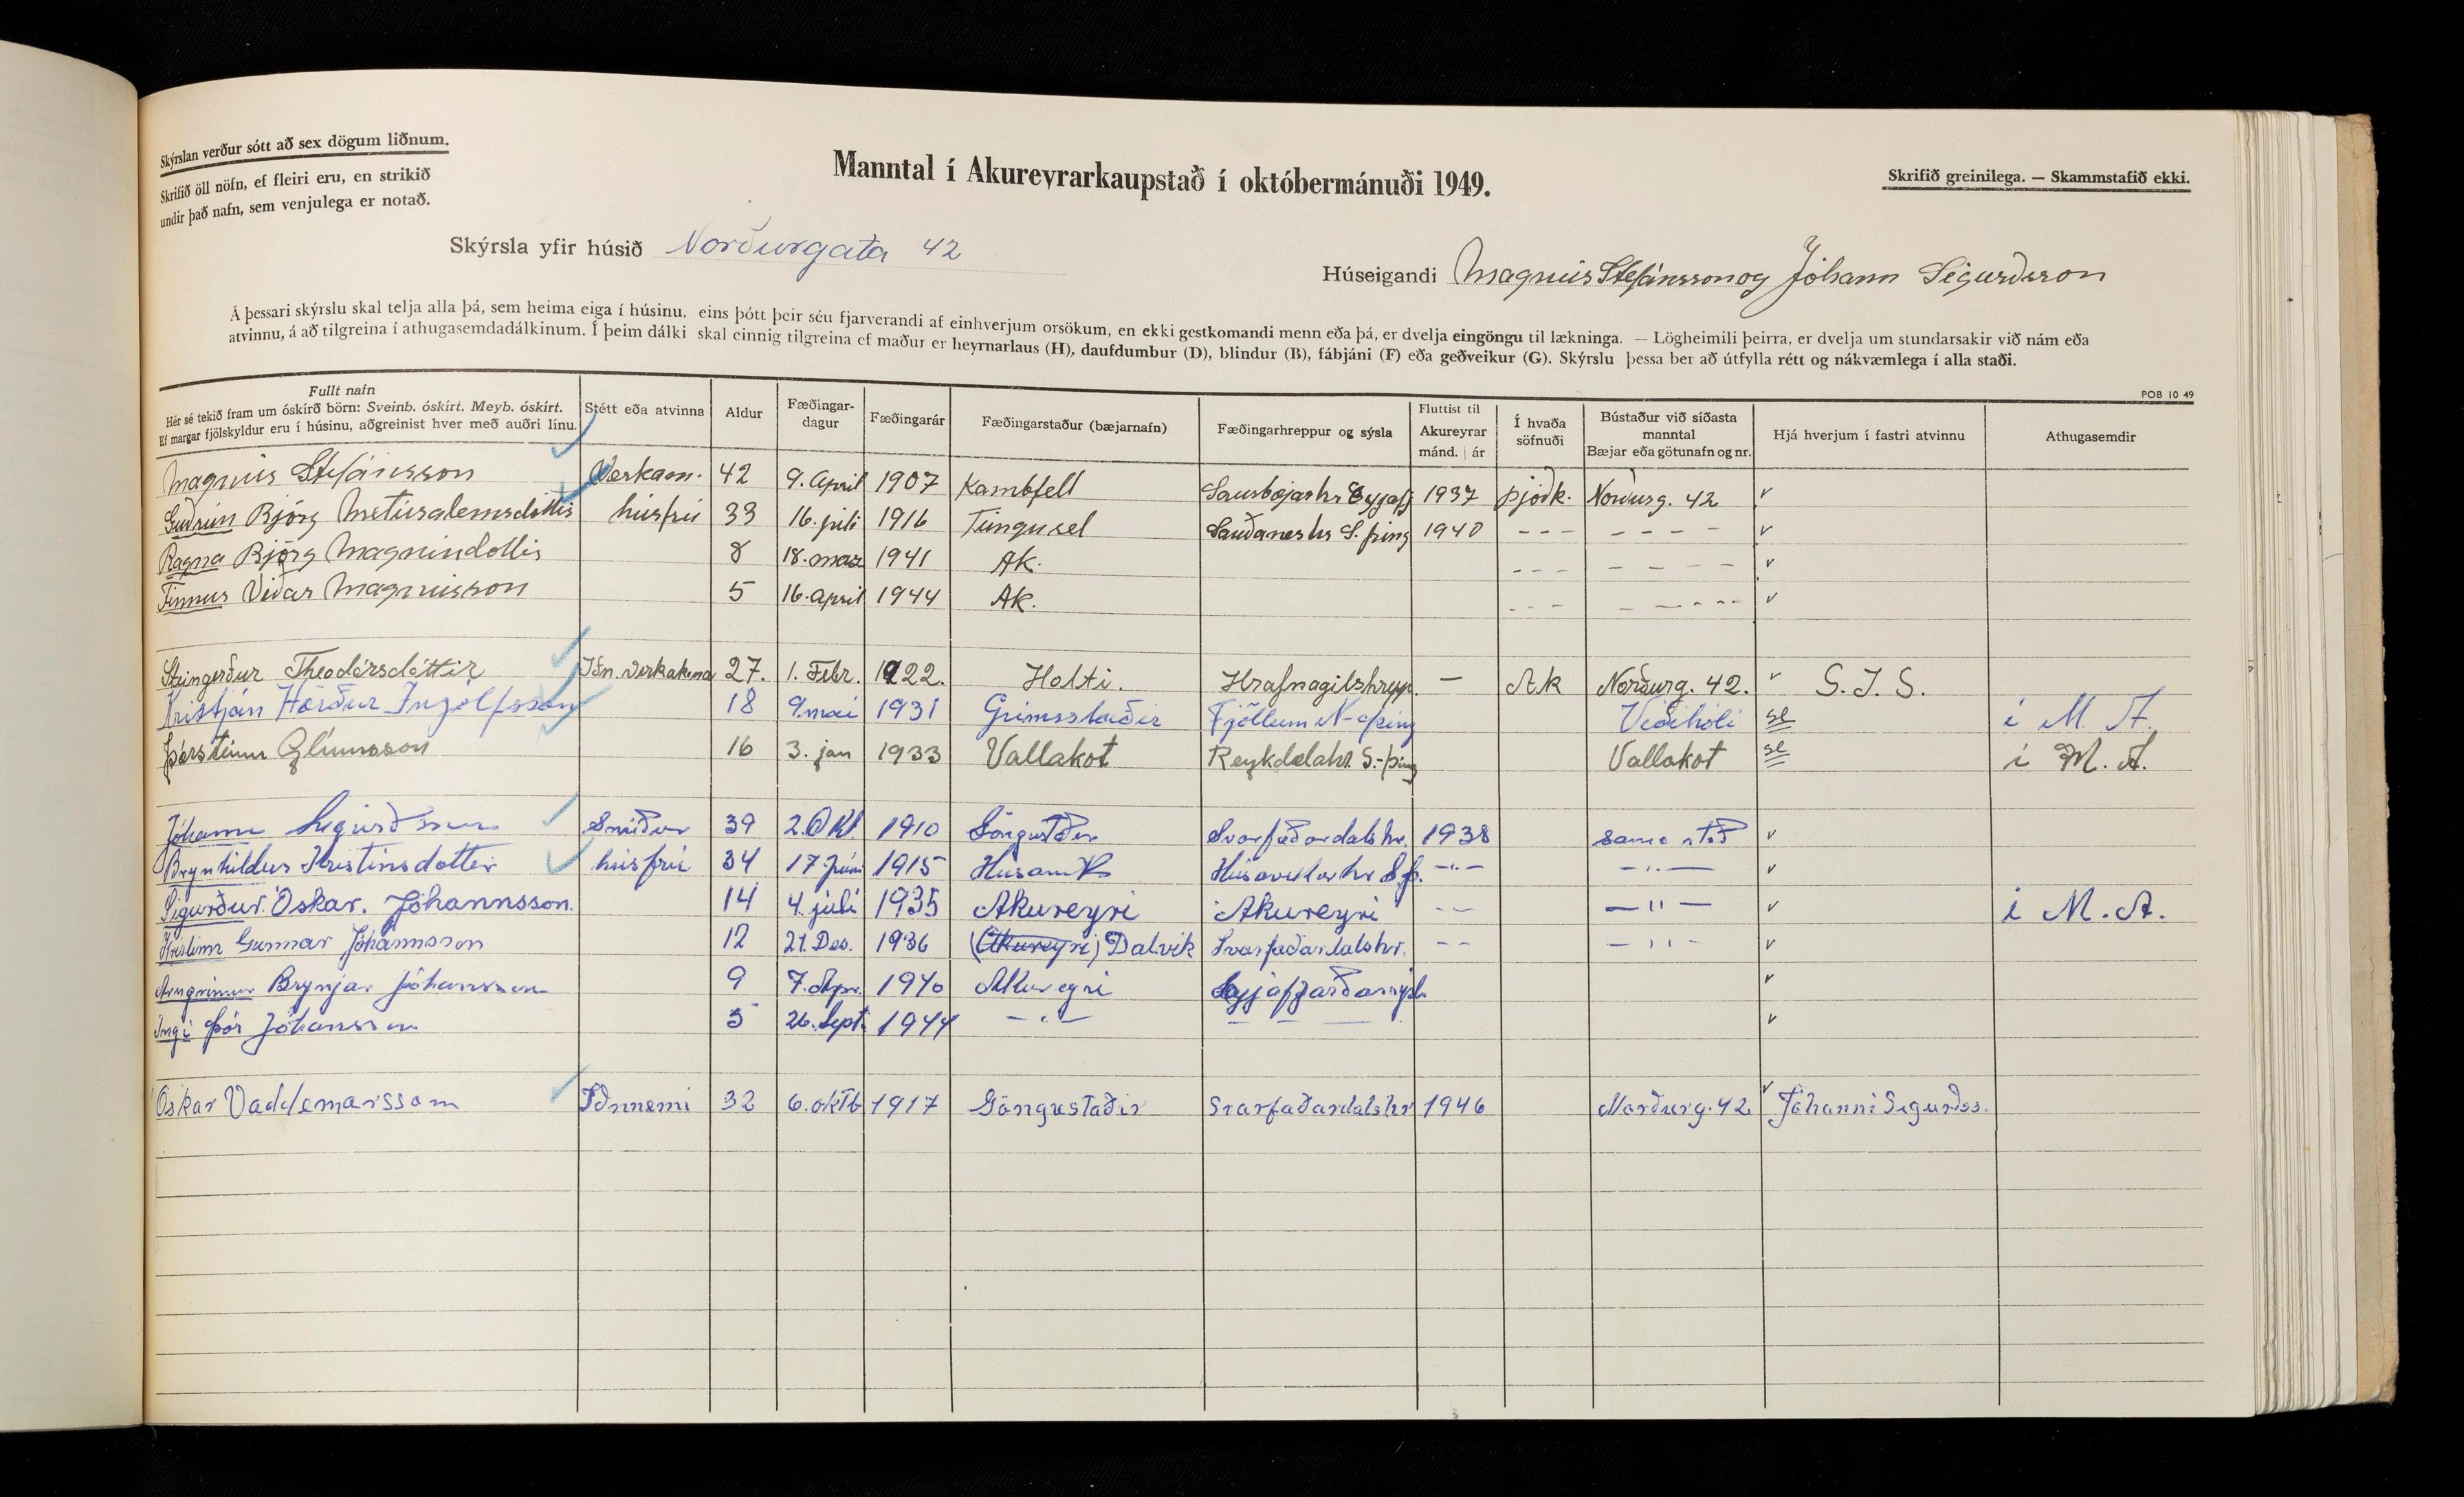 Skýrslan verður sótt að sex dögum liðnum.
Skrifið öll nöfn, ef fleiri eru, en strikið
undir það nafn, sem venjulega er notað.
Manntal í Akureyrarkaupstað í októbermánuði 1949.
Skrifið greinilega. — Skammstafið ekki.
Skýrsla yfir húsið Norðurgata 42
Húseigandi Magnús Stefánsson og Jóhann Sigurðsson
Á þessari skýrslu skal telja alla þá, sem heima eiga í húsinu, eins þótt þeir séu fjarverandi af einhverjum orsökum, en ekki gestkomandi menn eða þá, er dvelja eingöngu til lækninga. — Lögheimili þeirra, er dvelja um stundarsakir við nám eða
atvinnu, á að tilgreina í athugasemdadálkinum. Í þeim dálki skal einnig tilgreina ef maður er heyrnarlaus (H), daufdumbur (D), blindur (B), fábjáni (F) eða geðveikur (G). Skýrslu þessa ber að útfylla rétt og nákvæmlega í alla staði.
POB 10 49
Fullt nafn
Hér sé tekið fram um óskírð börn: Sveinb. óskírt. Meyb. óskírt.
Ef margar fjölskyldur eru í húsinu, aðgreinist hver með auðri línu.
Stétt eða atvinna
Aldur
Fæðingar-
dagur
Fæðingarár
Fæðingarstaður (bæjarnafn)
Fæðingarhreppur og sýsla
Fluttist til
Akureyrar
mánd. | ár
Í hvaða
söfnuði
Bústaður við síðasta
manntal
Bæjar eða götunafn og nr.
Hjá hverjum í fastri atvinnu
Athugasemdir
Magnús Stefánsson Verkam. 42 9. April 1907 Kambfell Saurbæjarhr Eyjafj 1937 Þjóðk. Norðurg. 42 v
Guðrún Björg Metúsalemsdóttir húsfrú 33 16. júlí 1916 Tungusel Sauðaneshr S. þing 1940 - - - - - - v
Ragna Björg Magnúsdóttir 8 18. mar 1941 Ak. - - - - - - - v
Finnur Viðar Magnússon 5 16. april 1944 Ak. - - - - - - - - v
Steingerður Theodórsdóttir Iðn. verkakona 27. 1. Febr. 1922. Holti. Hrafnagilshrepp. — Ak Norðurg. 42. v S. Í. S.
Kristján Hörður Ingólfsson 18 9. mai 1931 Grímsstaðir Fjöllum N-þing Víðihóli se í M. A.
Þorsteinn Glúmsson 16 3. jan 1933 Vallakot Reykdælahr. S.-þing Vallakot se í M. A.
Jóhann Sigurðsson Smiður 39 2. Okt 1910 Göngustðir Svarfaðardalshr. 1938 sama stað v
Brynhildur Kristinsdóttir húsfrú 34 17. júní 1915 Húsavík Húsavíkurhr S.þ. -"- -"- v
Sigurður Óskar. Jóhannsson. 14 4. júlí 1935 Akureyri Akureyri -- —"— v í M. A.
Kristinn Gunnar Jóhannsson 12 21. Des. 1936 (Akureyri) Dalvík Svarfaðardalshr. -- -"- v
Arngrímur Brynjar Jóhannsson 9 7. Apr. 1940 Akureyri Eyjafjarðarsýsl v
Ingi Þór Jóhannsson 5 26. Sept. 1944 -"- — — — v
Óskar Valdemarssom Iðnnemi 32 6. oktb 1917 Göngustaðir Svarfaðardalshr 1946 Norðurg. 42. v Jóhanni Sigurðss.